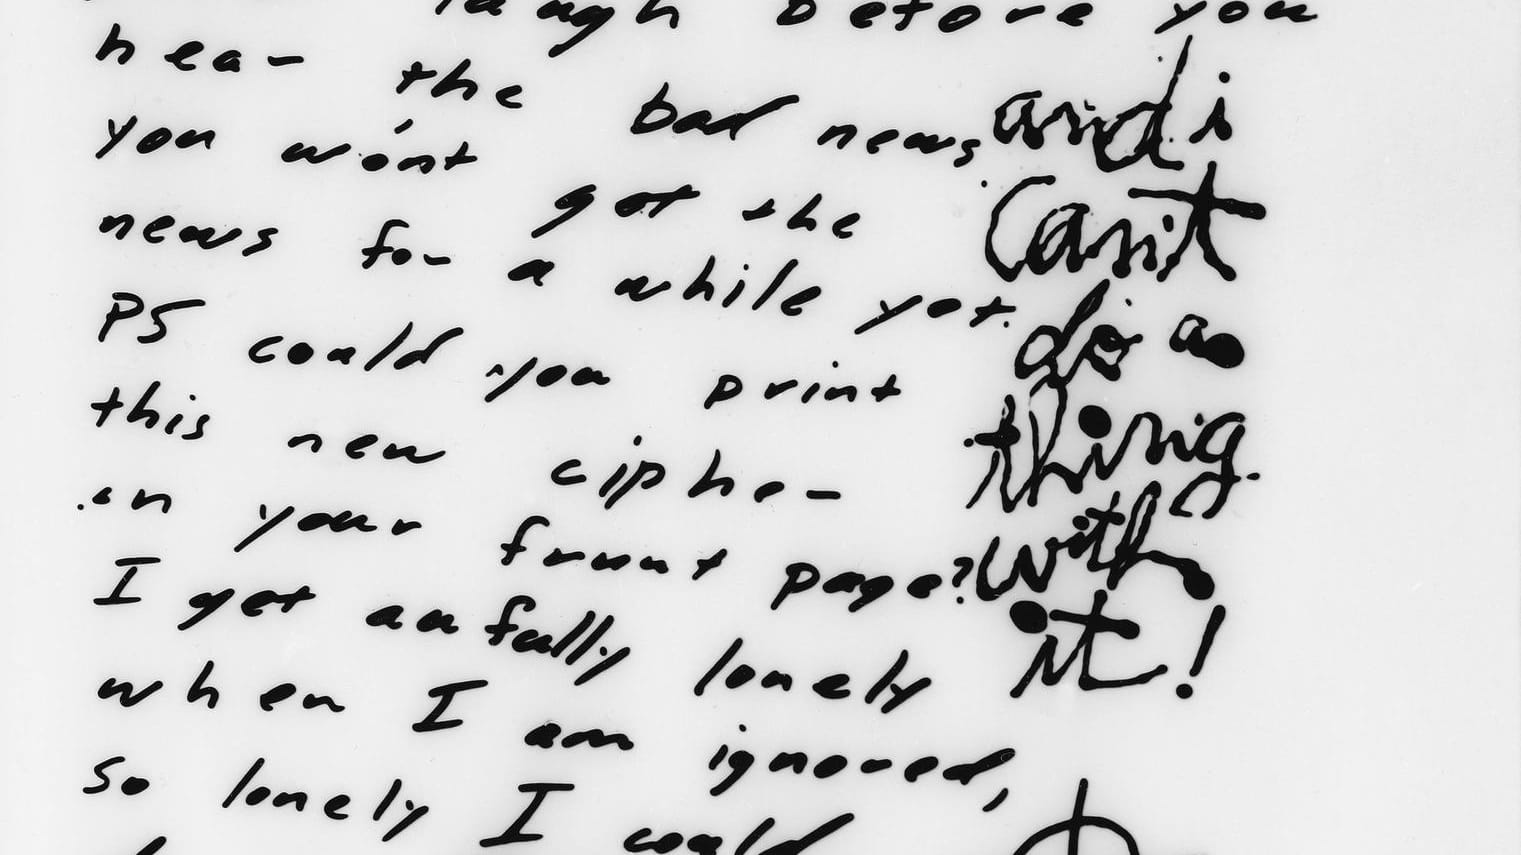 laugh before you
hear the bad news
you won't get the
news for a while yet.
PS could you print
this new cipher
in your frunt page?
I get aufully lonely
when I am ignored,
so lonely I could
and i
can't
do a
thing
with
it!